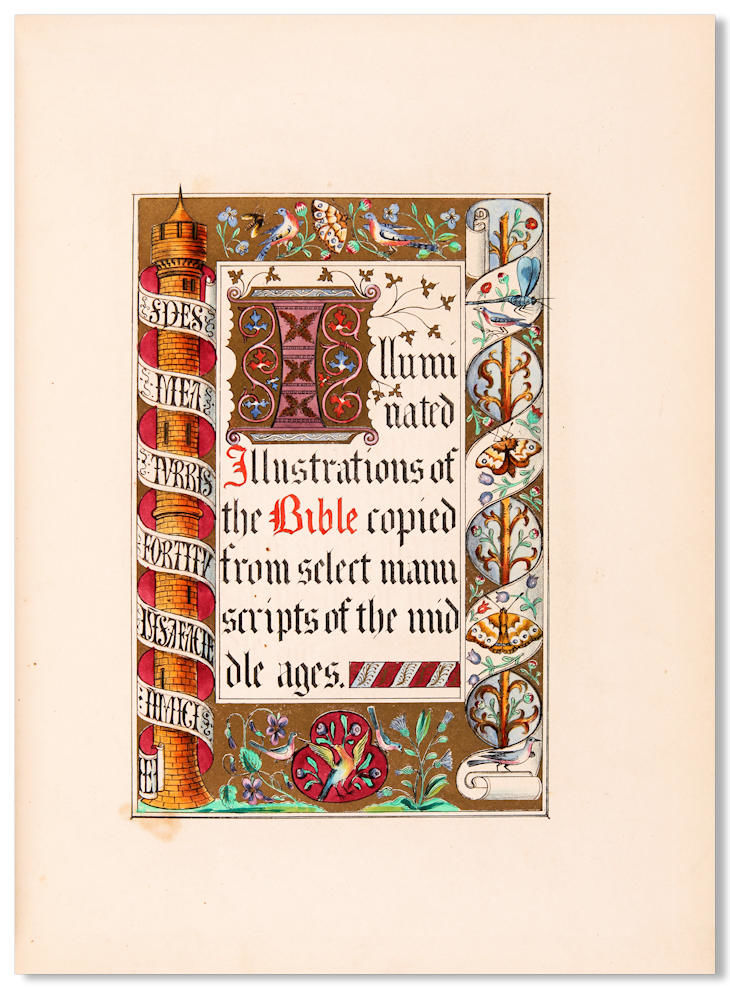 SPES
MEA
TVRRIS
FORTITV
A FACIE
INIMICI
Illumi
nated
Illustrations of
the Bible copied
from select manu
scripts of the mid
dle ages.